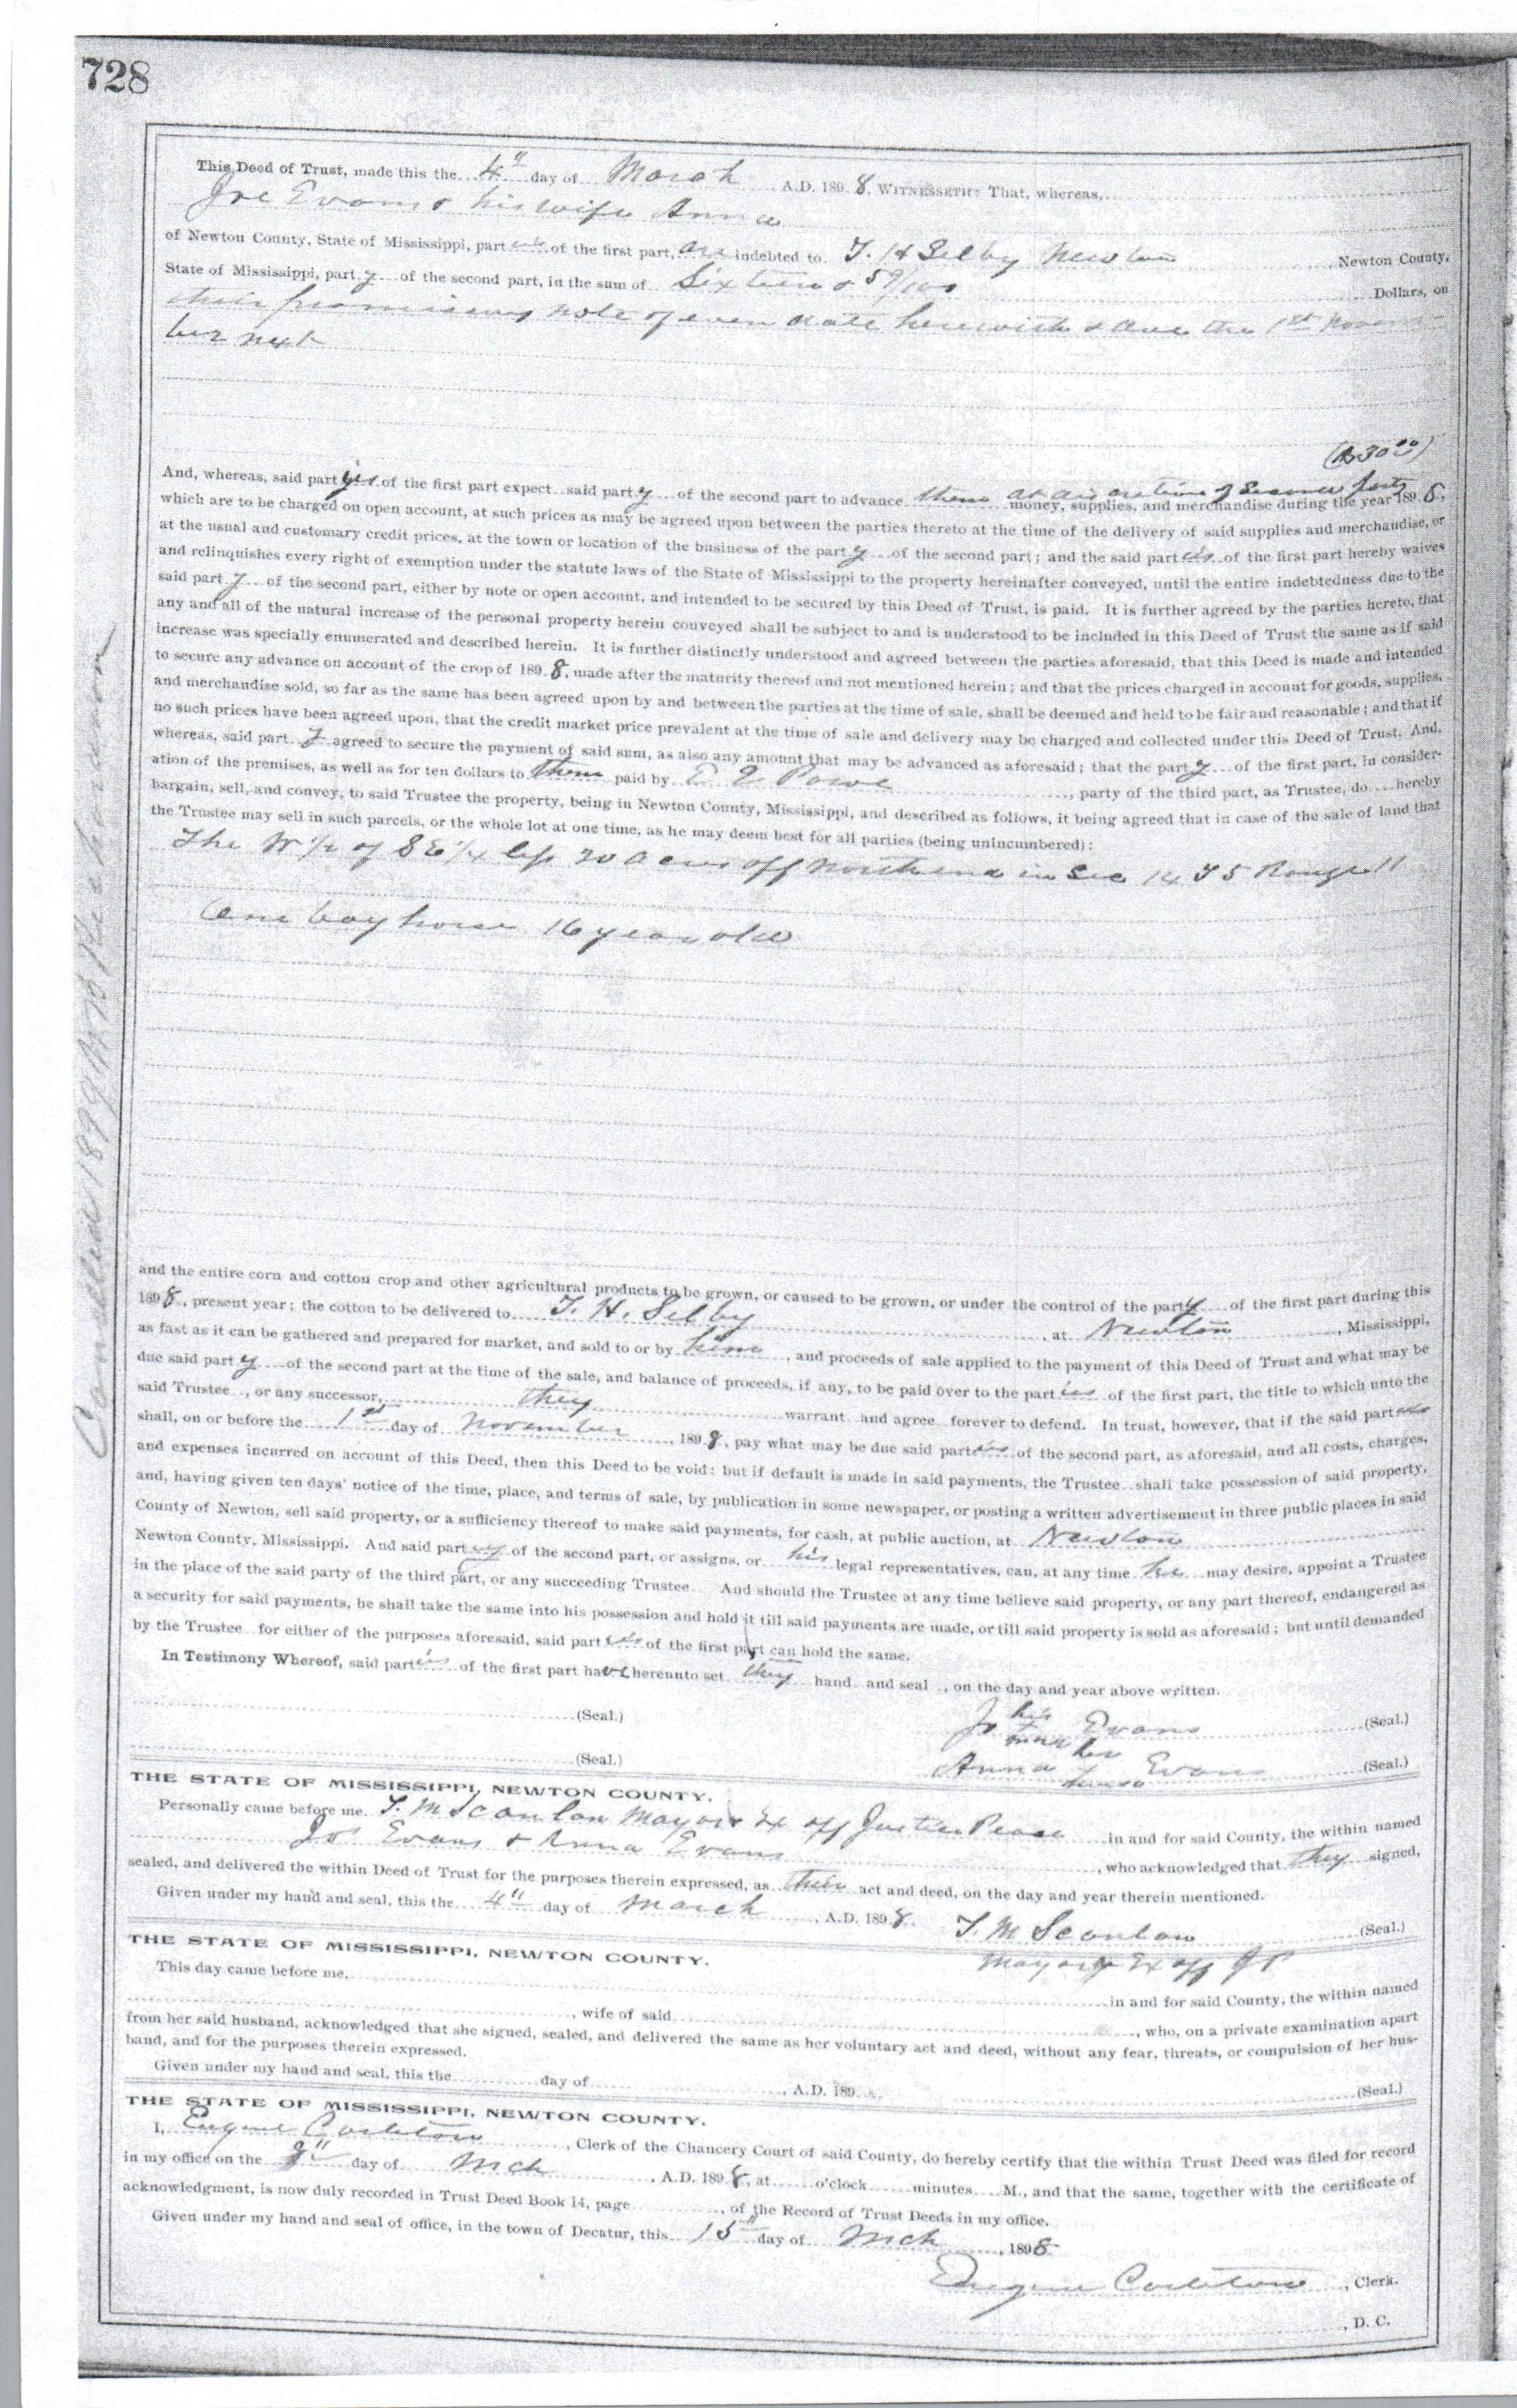 728
This Deed of Trust, made this the 4" day of March A.D. 1898, WITNESSETH: That, whereas,
Joe Evans & his wife Anna
of Newton County, State of Mississippi, part ies of the first part, are indebted to T. H Selby Newton , Newton County,
State of Mississippi, part y of the second part, in the sum of Sixteen & 59/100 Dollars, on
their promissory note of even date herewith & due the 1st Novem-
ber next
($30.00)
And, whereas, said parties of the first part expect said party of the second part to advance them at discretion of Second party money, supplies, and merchandise during the year 1898,
which are to be charged on open account, at such prices as may be agreed upon between the parties thereto at the time of the delivery of said supplies and merchandise, or
at the usual and customary credit prices, at the town or location of the business of the party of the second part; and the said parties of the first part hereby waives
and relinquishes every right of exemption under the statute laws of the State of Mississippi to the property hereinafter conveyed, until the entire indebtedness due to the
said party of the second part, either by note or open account, and intended to be secured by this Deed of Trust, is paid. It is further agreed by the parties hereto, that
any and all of the natural increase of the personal property herein conveyed shall be subject to and is understood to be included in this Deed of Trust the same as if said
increase was specially enumerated and described herein. It is further distinctly understood and agreed between the parties aforesaid, that this Deed is made and intended
to secure any advance on account of the crop of 1898, made after the maturity thereof and not mentioned herein; and that the prices charged in account for goods, supplies,
and merchandise sold, so far as the same has been agreed upon by and between the parties at the time of sale, shall be deemed and held to be fair and reasonable; and that if
no such prices have been agreed upon, that the credit market price prevalent at the time of sale and delivery may be charged and collected under this Deed of Trust. And,
whereas, said party agreed to secure the payment of said sum, as also any amount that may be advanced as aforesaid; that the party of the first part, in consider-
ation of the premises, as well as for ten dollars to them paid by E Powe , party of the third part, as Trustee, do hereby
bargain, sell, and convey, to said Trustee the property, being in Newton County, Mississippi, and described as follows, it being agreed that in case of the sale of land that
the Trustee may sell in such parcels, or the whole lot at one time, as he may deem best for all parties (being unincumbered):
The W 1/2 of SE 1/4 less 20 acres off north end in Sec 14 T 5 Range 11
One bay horse 16 year old
and the entire corn and cotton crop and other agricultural products to be grown, or caused to be grown, or under the control of the party of the first part during this
1898, present year; the cotton to be delivered to T. H. Selby , at Newton , Mississippi,
as fast as it can be gathered and prepared for market, and sold to or by him , and proceeds of sale applied to the payment of this Deed of Trust and what may be
due said party of the second part at the time of the sale, and balance of proceeds, if any, to be paid over to the parties of the first part, the title to which unto the
said Trustee , or any successor, they warrant and agree forever to defend. In trust, however, that if the said parties
shall, on or before the 1st day of November , 1898, pay what may be due said parties of the second part, as aforesaid, and all costs, charges,
and expenses incurred on account of this Deed, then this Deed to be void: but if default is made in said payments, the Trustee shall take possession of said property,
and, having given ten days' notice of the time, place, and terms of sale, by publication in some newspaper, or posting a written advertisement in three public places in said
County of Newton, sell said property, or a sufficiency thereof to make said payments, for cash, at public auction, at Newton
Newton County, Mississippi. And said party of the second part, or assigns, or his legal representatives, can, at any time he may desire, appoint a Trustee
in the place of the said party of the third part, or any succeeding Trustee And should the Trustee at any time believe said property, or any part thereof, endangered as
a security for said payments, he shall take the same into his possession and hold it till said payments are made, or till said property is sold as aforesaid; but until demanded
by the Trustee for either of the purposes aforesaid, said parties of the first part can hold the same.
In Testimony Whereof, said parties of the first part have hereunto set they hand and seal , on the day and year above written.
his
(Seal.) Jo Evans (Seal.)
mark her
(Seal.) Anna Evans (Seal.)
THE STATE OF MISSISSIPPI, NEWTON COUNTY.
Personally came before me, T. M Scanlan Mayor & Ex off Justice Peace in and for said County, the within named
Jos Evans & Anna Evans , who acknowledged that they signed,
sealed, and delivered the within Deed of Trust for the purposes therein expressed, as their act and deed, on the day and year therein mentioned.
Given under my hand and seal, this the 4" day of March , A.D. 1898. T. M Scanlan (Seal.)
Mayor & Ex off JP
THE STATE OF MISSISSIPPI, NEWTON COUNTY.
This day came before me, in and for said County, the within named
, wife of said , who, on a private examination apart
from her said husband, acknowledged that she signed, sealed, and delivered the same as her voluntary act and deed, without any fear, threats, or compulsion of her hus-
band, and for the purposes therein expressed.
Given under my hand and seal, this the day of , A.D. 189 (Seal.)
THE STATE OF MISSISSIPPI, NEWTON COUNTY.
I, Eugene Carleton , Clerk of the Chancery Court of said County, do hereby certify that the within Trust Deed was filed for record
in my office on the day of Mch , A.D. 1898, at o'clock minutes M., and that the same, together with the certificate of
acknowledgment, is now duly recorded in Trust Deed Book 14, page , of the Record of Trust Deeds in my office.
Given under my hand and seal of office, in the town of Decatur, this 15" day of Mch , 1898
Eugene Carleton , Clerk.
, D. C.
Cancelled 1899